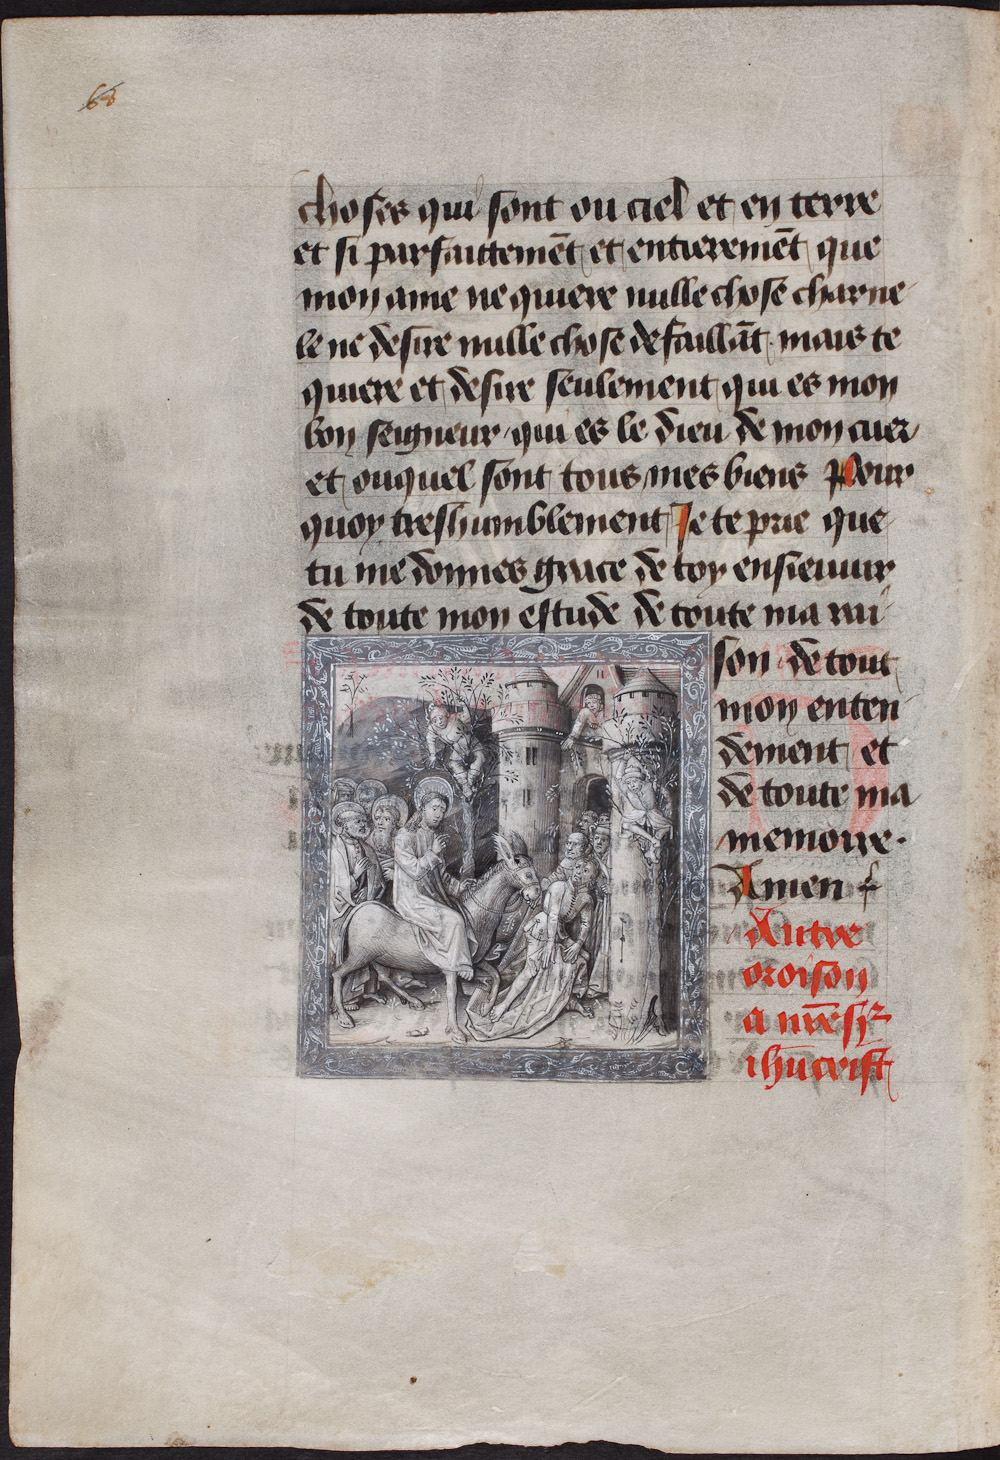 68
choses qui sont ou ciel et en terre
et si parfaittemēt et entieremēt que
mon ame ne quiere nulle chose charne
le ne desire nulle chose defaillāt . mais te
quiere et desire seulement qui es mon
bon seigneur qui es le dieu de mon cuer
et ouquel sont tous mes biens Pour
quoy treshumblement Je te prie que
tu me donnes grace de toy ensieuuir
de toute mon estude de toute ma rai
son de tout
mon enten
dement et
de toute ma
memoire .
Amen
Autre
oroison
a nr̄e sr
ihūcrist